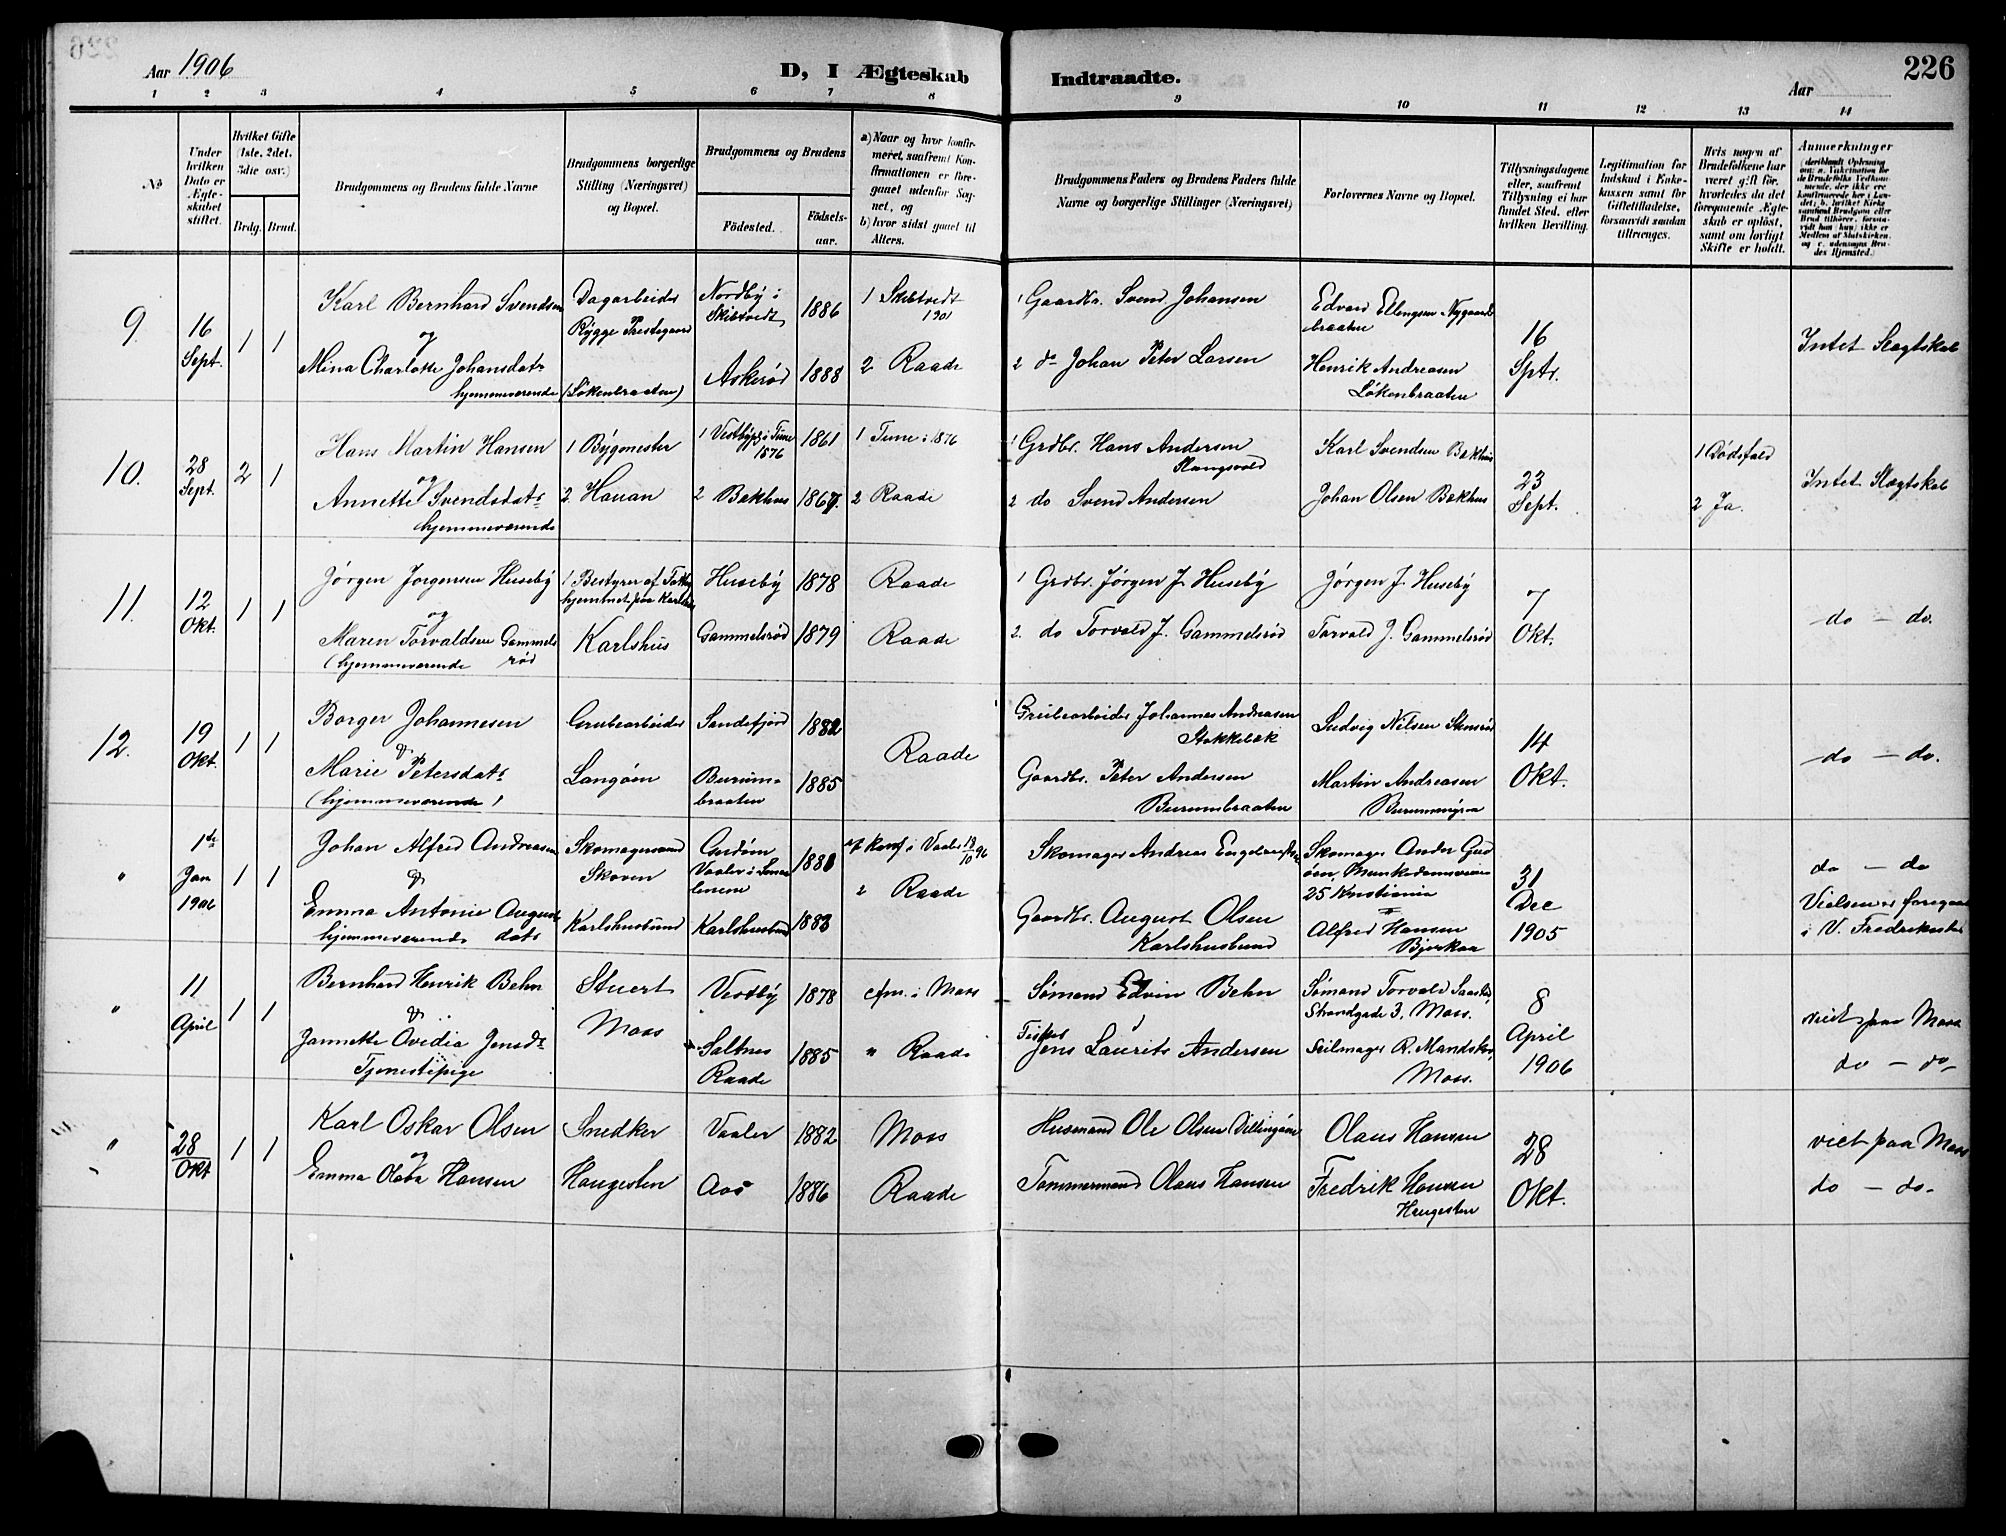 Aar 1906
D, I Ægteskab
Indtraadte.
Aar
226
1 2 3 4 5 6 7 8 9 10 11 12 13 14
No
Under
hvilken
Dato er
Ægte-
skabet
stiftet.
Hvilket Gifte
(1ste, 2det,
3die osv.)
Brdg.
Brud.
Brudgommens og Brudens fulde Navne
Brudgommens borgerlige
Stilling (Næringsvei)
og Bopæl.
Brudgommens og Brudens
Födested.
Födsels-
aar.
a) Naar og hvor konfir-
meret, saafremt Kon-
firmationen er fore-
gaaet udenfor Sog-
net, og
b) hvor sidst gaaet til
Alters.
Brudgommens Faders og Brudens Faders fulde
Navne og borgerlige Stillinger (Næringsvei)
Forlovernes Navne og Bopæl.
Tillysningsdagene
eller, saafremt
Tillysning ei har
fundet Sted, efter
hvilken Bevilling.
Legitimation for
Indskud i Enke-
kassen samt for
Giftetilladelse,
forsaavidt saadan
tiltrænges.
Hvis nogen af
Brudefolkene har
været gift för,
hvorledes da det
foregaaende Ægte-
skab er oplöst,
samt om lovligt
Skifte er holdt.
Anmerkninger
(deriblandt Oplysning
om: a. Vakcination for
de Brudefolks Vedkom-
mende, der ikke ere
konfirmerede her i Lan-
det; b. hvilket Kirke-
samfund Brudgom eller
Brud tilhører, forsaa-
vidt han (hun) ikke er
Medlem af Statskirken,
og c. udensogns Bru-
des Hjemsted.)
9. 16 Sept. 1 1
Karl Bernhard Svendsen
og
Mina Charlotte Johansdatr
hjemmeværende
Dagarbeider
Rygge Prestegaard
(Løkenbraaten)
Nordby i
Skibtvedt
Askerød
1886
1888
1 Skibtvedt
1901
2 Raade
1 Gaardbr. Svend Johansen
2 do Johan Peter Larsen
Edvard Ellengsen Nygaards
braaten
Henrik Andreasen
Løkenbraaten
16
Sptr.
Intet Slægtskab
10. 28 Sept. 2 1
Hans Martin Hansen
og
Annette Svendsdatr
hjemmeværende
1 Bygmester
2. Hauan
1 Vestby i Tune
1876
2 Bækhus
1861
1867.
1 Tune i 1876
2 Raade
1 Grdbr. Hans Andersen
2 do Svend Andersen
Karl Svendsen Bækhus
Johan Olsen Bækhus
23
Sept.
1 Dødsfald
2 Ja.
Intet Slægtskab
11. 12 Okt. 1 1
Jørgen Jørgensen Huseby
og
Maren Torvaldsen Gammels
rød
(hjemmeværende
1 Bestyrer af Fattig
hjemmet paa Karlshus
Karlshus
Huseby
Gammelsrød
1878
1879
Raade
Raade
1 Grdbr. Jørgen J. Huseby
2. do Torvald J. Gammelsrød
Jørgen J. Huseby
Torvald J. Gammelsrød
7
Okt.
do – do.
12. 19 Okt. 1 1
Borger Johannesen
&
Marie Petersdatr
(hjemmeværende)
Grubearbeider
Langøen
Sandefjord
Burum-
braaten
1882
1885
Raade
Grubearbeider Johannes Andreasen
Stokkebæk
Gaardbr. Peter Andersen
Burumbraaten
Ludvig Nilsen Stensrød
Martin Andreasen
Burummyra
14
Okt.
do – do.
" 1ste Jan 1906 1 1
Johan Alfred Andreasen
&
Emma Antonie August
datr
hjemmeværende
Skomagersvend
Skoven
Karlshussund
Vaaler i Smaa
lenene
Karlshusbund
1881
1883
Konf i Vaaler 18/10 96
2 Raade
Skomager Andreas
Gaardbr. August Olsen
Karlshusbund
Skomager
Munkedamsveien
25 Kristiania
Alfred Hansen
Bjerkaa
31
Dec
1905
do – do
Vielsen er foregaaet
i V. Fredrikstad
" 11 April 1 1
Bernhard Henrik Behn
&
Jannette Ovidia Jensdr
Tjenestepige
Stuert
Moss
Vestby
Saltnes
Raade
1878
1885
i Moss
" Raade
Sømand Edvin Behn
Fisker
Jens Laurits Andersen
Sømand Torvald
Strandgade 3, Moss.
Seilmager R. Mandskov,
Moss.
8
April
1906
viet paa Moss
do – do
" 28 Okt 1 1
Karl Oskar Olsen
og
Emma Olava Hansen
Snedker
Haugesten
Vaaler
Aas
1882
1886
Moss
Raade
Husmand Ole Olsen Dillingøen
Tømmermand Olaus Hansen
Olaus Hansen
Fredrik Hansen
Haugesten
28
Okt.
viet paa Moss
do – do.